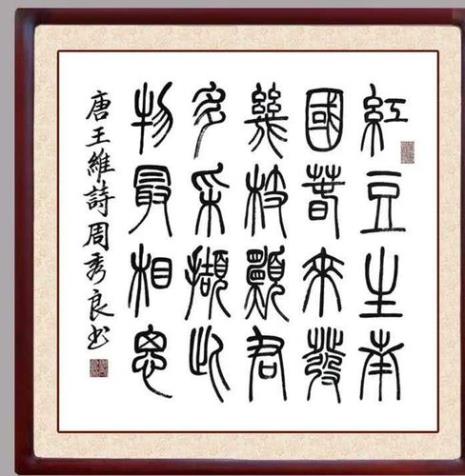 紅豆生南
國春來發
幾枝願君
多采擷此
物最相思
唐王維詩周秀良书